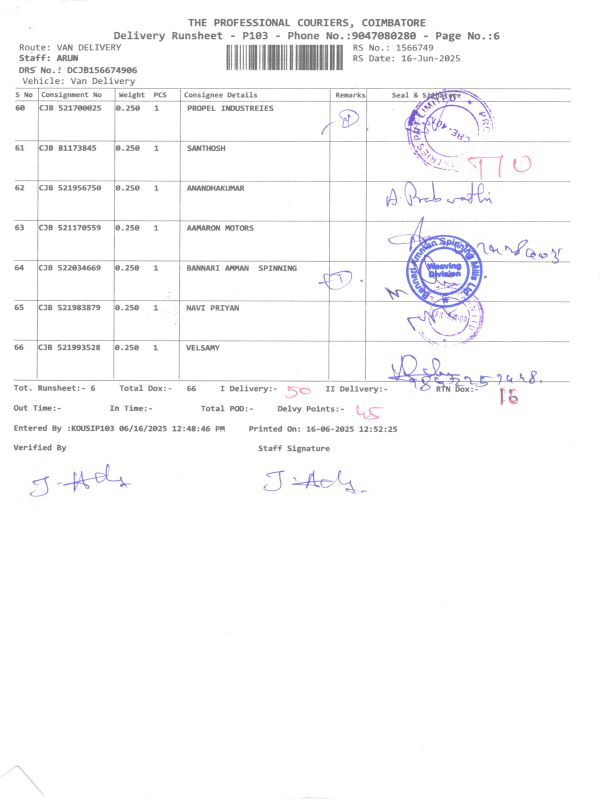 THE PROFESSIONAL COURIERS, COIMBATORE
Delivery Runsheet - P103 - Phone No.:9047080280 - Page No.:6
Route: VAN DELIVERY RS No.: 1566749
Staff: ARUN RS Date: 16-Jun-2025
DRS No.: DCJB156674906
Vehicle: Van Delivery
S No Consignment No Weight PCS Consignee Details Remarks Seal & Signature
60 CJB 521700025 0.250 1 PROPEL INDUSTREIES
61 CJB 81173845 0.250 1 SANTHOSH
62 CJB 521956750 0.250 1 ANANDHAKUMAR
63 CJB 521170559 0.250 1 AAMARON MOTORS
64 CJB 522034669 0.250 1 BANNARI AMMAN SPINNING
Bannari Amman Spinning Mills Ltd.
Weaving Division
65 CJB 521983879 0.250 1 NAVI PRIYAN
66 CJB 521993528 0.250 1 VELSAMY
Tot. Runsheet:- 6 Total Dox:- 66 I Delivery:- 50 II Delivery:- RTN Dox:- 16
Out Time:- In Time:- Total POD:- Delvy Points:- 45
Entered By :KOUSIP103 06/16/2025 12:48:46 PM Printed On: 16-06-2025 12:52:25
Verified By Staff Signature